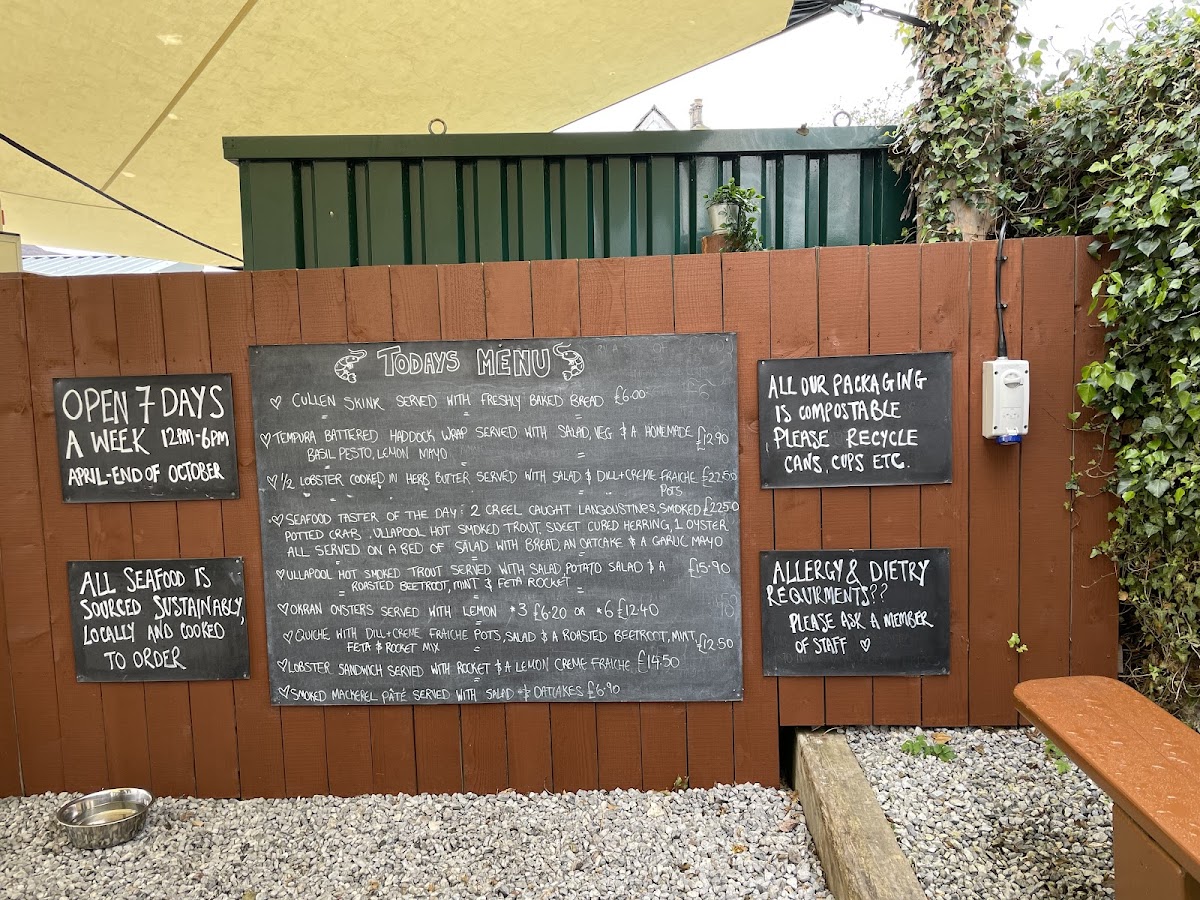 OPEN 7 DAYS
A WEEK 12PM-6PM
APRIL-END OF OCTOBER
ALL SEAFOOD IS
SOURCED SUSTAINABLY,
LOCALLY AND COOKED
TO ORDER
TODAYS MENU
♡ CULLEN SKINK SERVED WITH FRESHLY BAKED BREAD £6.00
♡ TEMPURA BATTERED HADDOCK WRAP SERVED WITH SALAD, VEG & A HOMEMADE £12.90
BASIL PESTO, LEMON MAYO
♡ 1/2 LOBSTER COOKED IN HERB BUTTER SERVED WITH SALAD & DILL+CREME FRAICHE £22.50
POTS
♡ SEAFOOD TASTER OF THE DAY: 2 CREEL CAUGHT LANGOUSTINES, SMOKED £22.50
POTTED CRAB, ULLAPOOL HOT SMOKED TROUT, SWEET CURED HERRING, 1 OYSTER
ALL SERVED ON A BED OF SALAD WITH BREAD, AN OATCAKE & A GARLIC MAYO
♡ ULLAPOOL HOT SMOKED TROUT SERVED WITH SALAD, POTATO SALAD & A £15.90
ROASTED BEETROOT, MINT & FETA ROCKET
♡ OKRAN OYSTERS SERVED WITH LEMON *3 £6.20 OR *6 £12.40
♡ QUICHE WITH DILL+CREME FRAICHE POTS, SALAD & A ROASTED BEETROOT, MINT, £12.50
FETA & ROCKET MIX
♡ LOBSTER SANDWICH SERVED WITH ROCKET & A LEMON CREME FRAICHE £14.50
♡ SMOKED MACKEREL PÂTÉ SERVED WITH SALAD & OATCAKES £6.90
ALL OUR PACKAGING
IS COMPOSTABLE
PLEASE RECYCLE
CANS, CUPS ETC.
ALLERGY & DIETRY
REQUIRMENTS??
PLEASE ASK A MEMBER
OF STAFF ♡